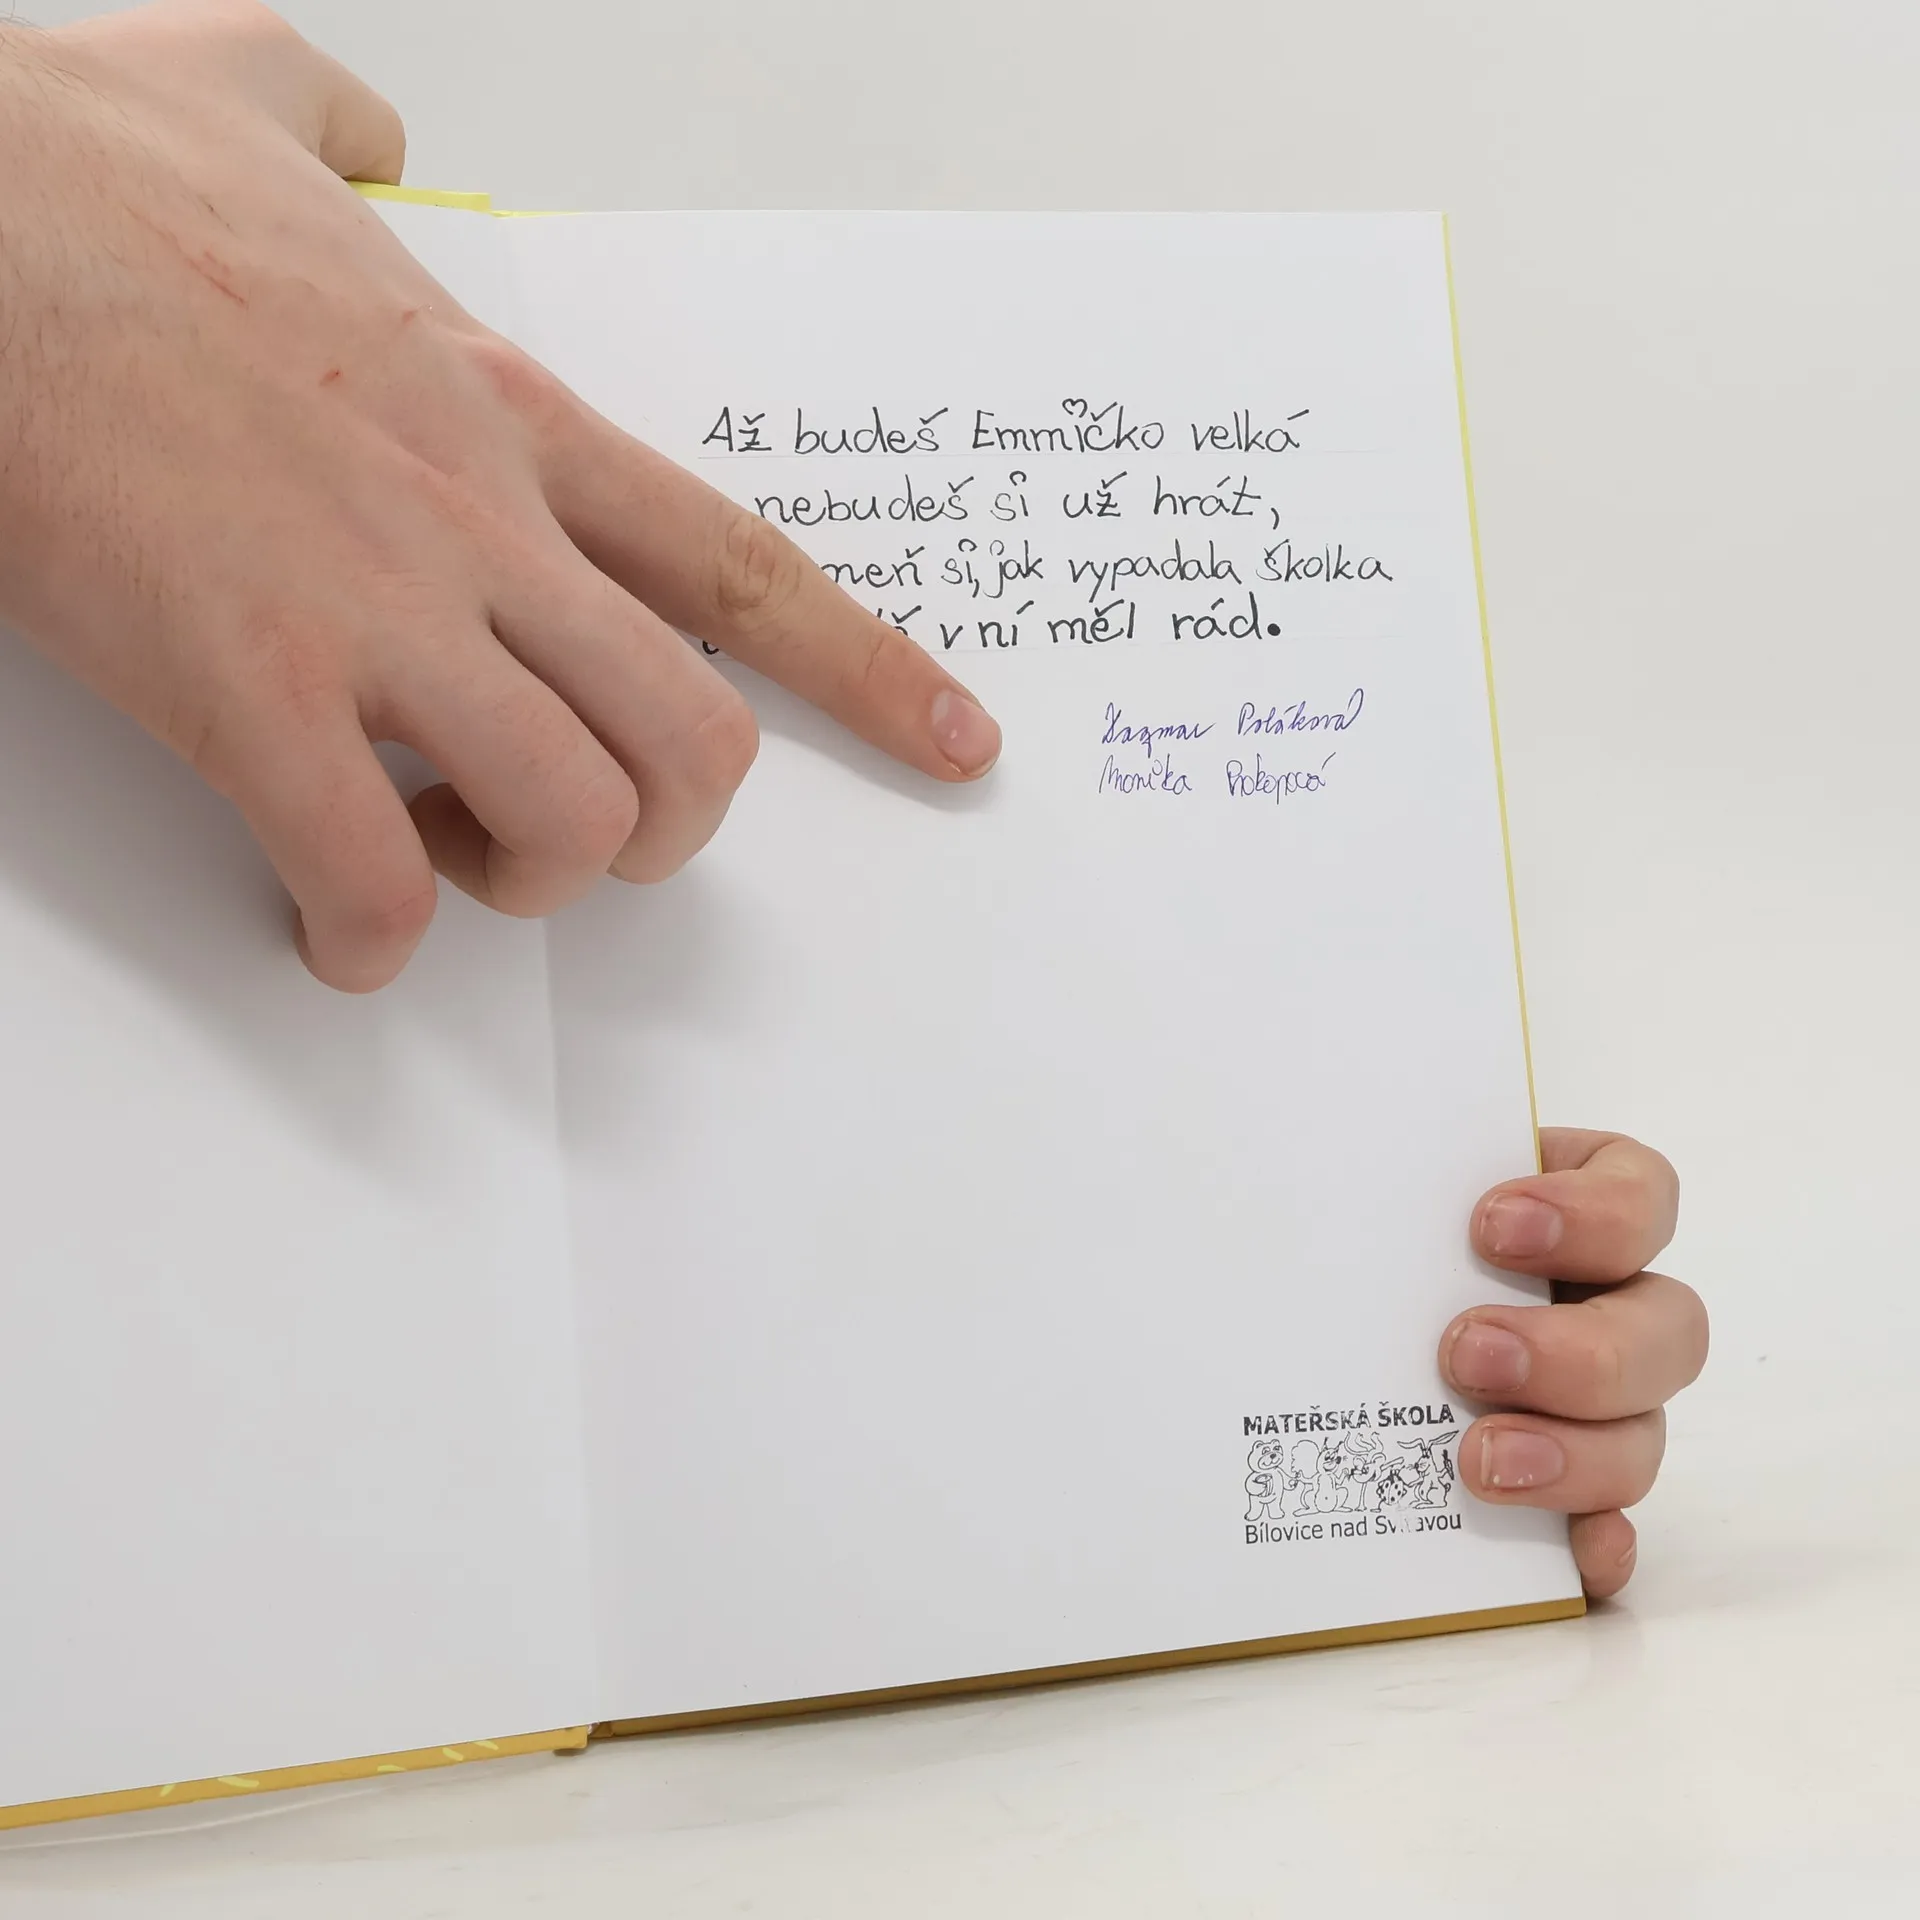 Až budeš Emmičko velká
nebudeš si už hrát,
si, jak vypadala školka
v ní měl rád.
Dagmar Poláková
Monika Prokopová
MATEŘSKÁ ŠKOLA
Bílovice nad Svitavou